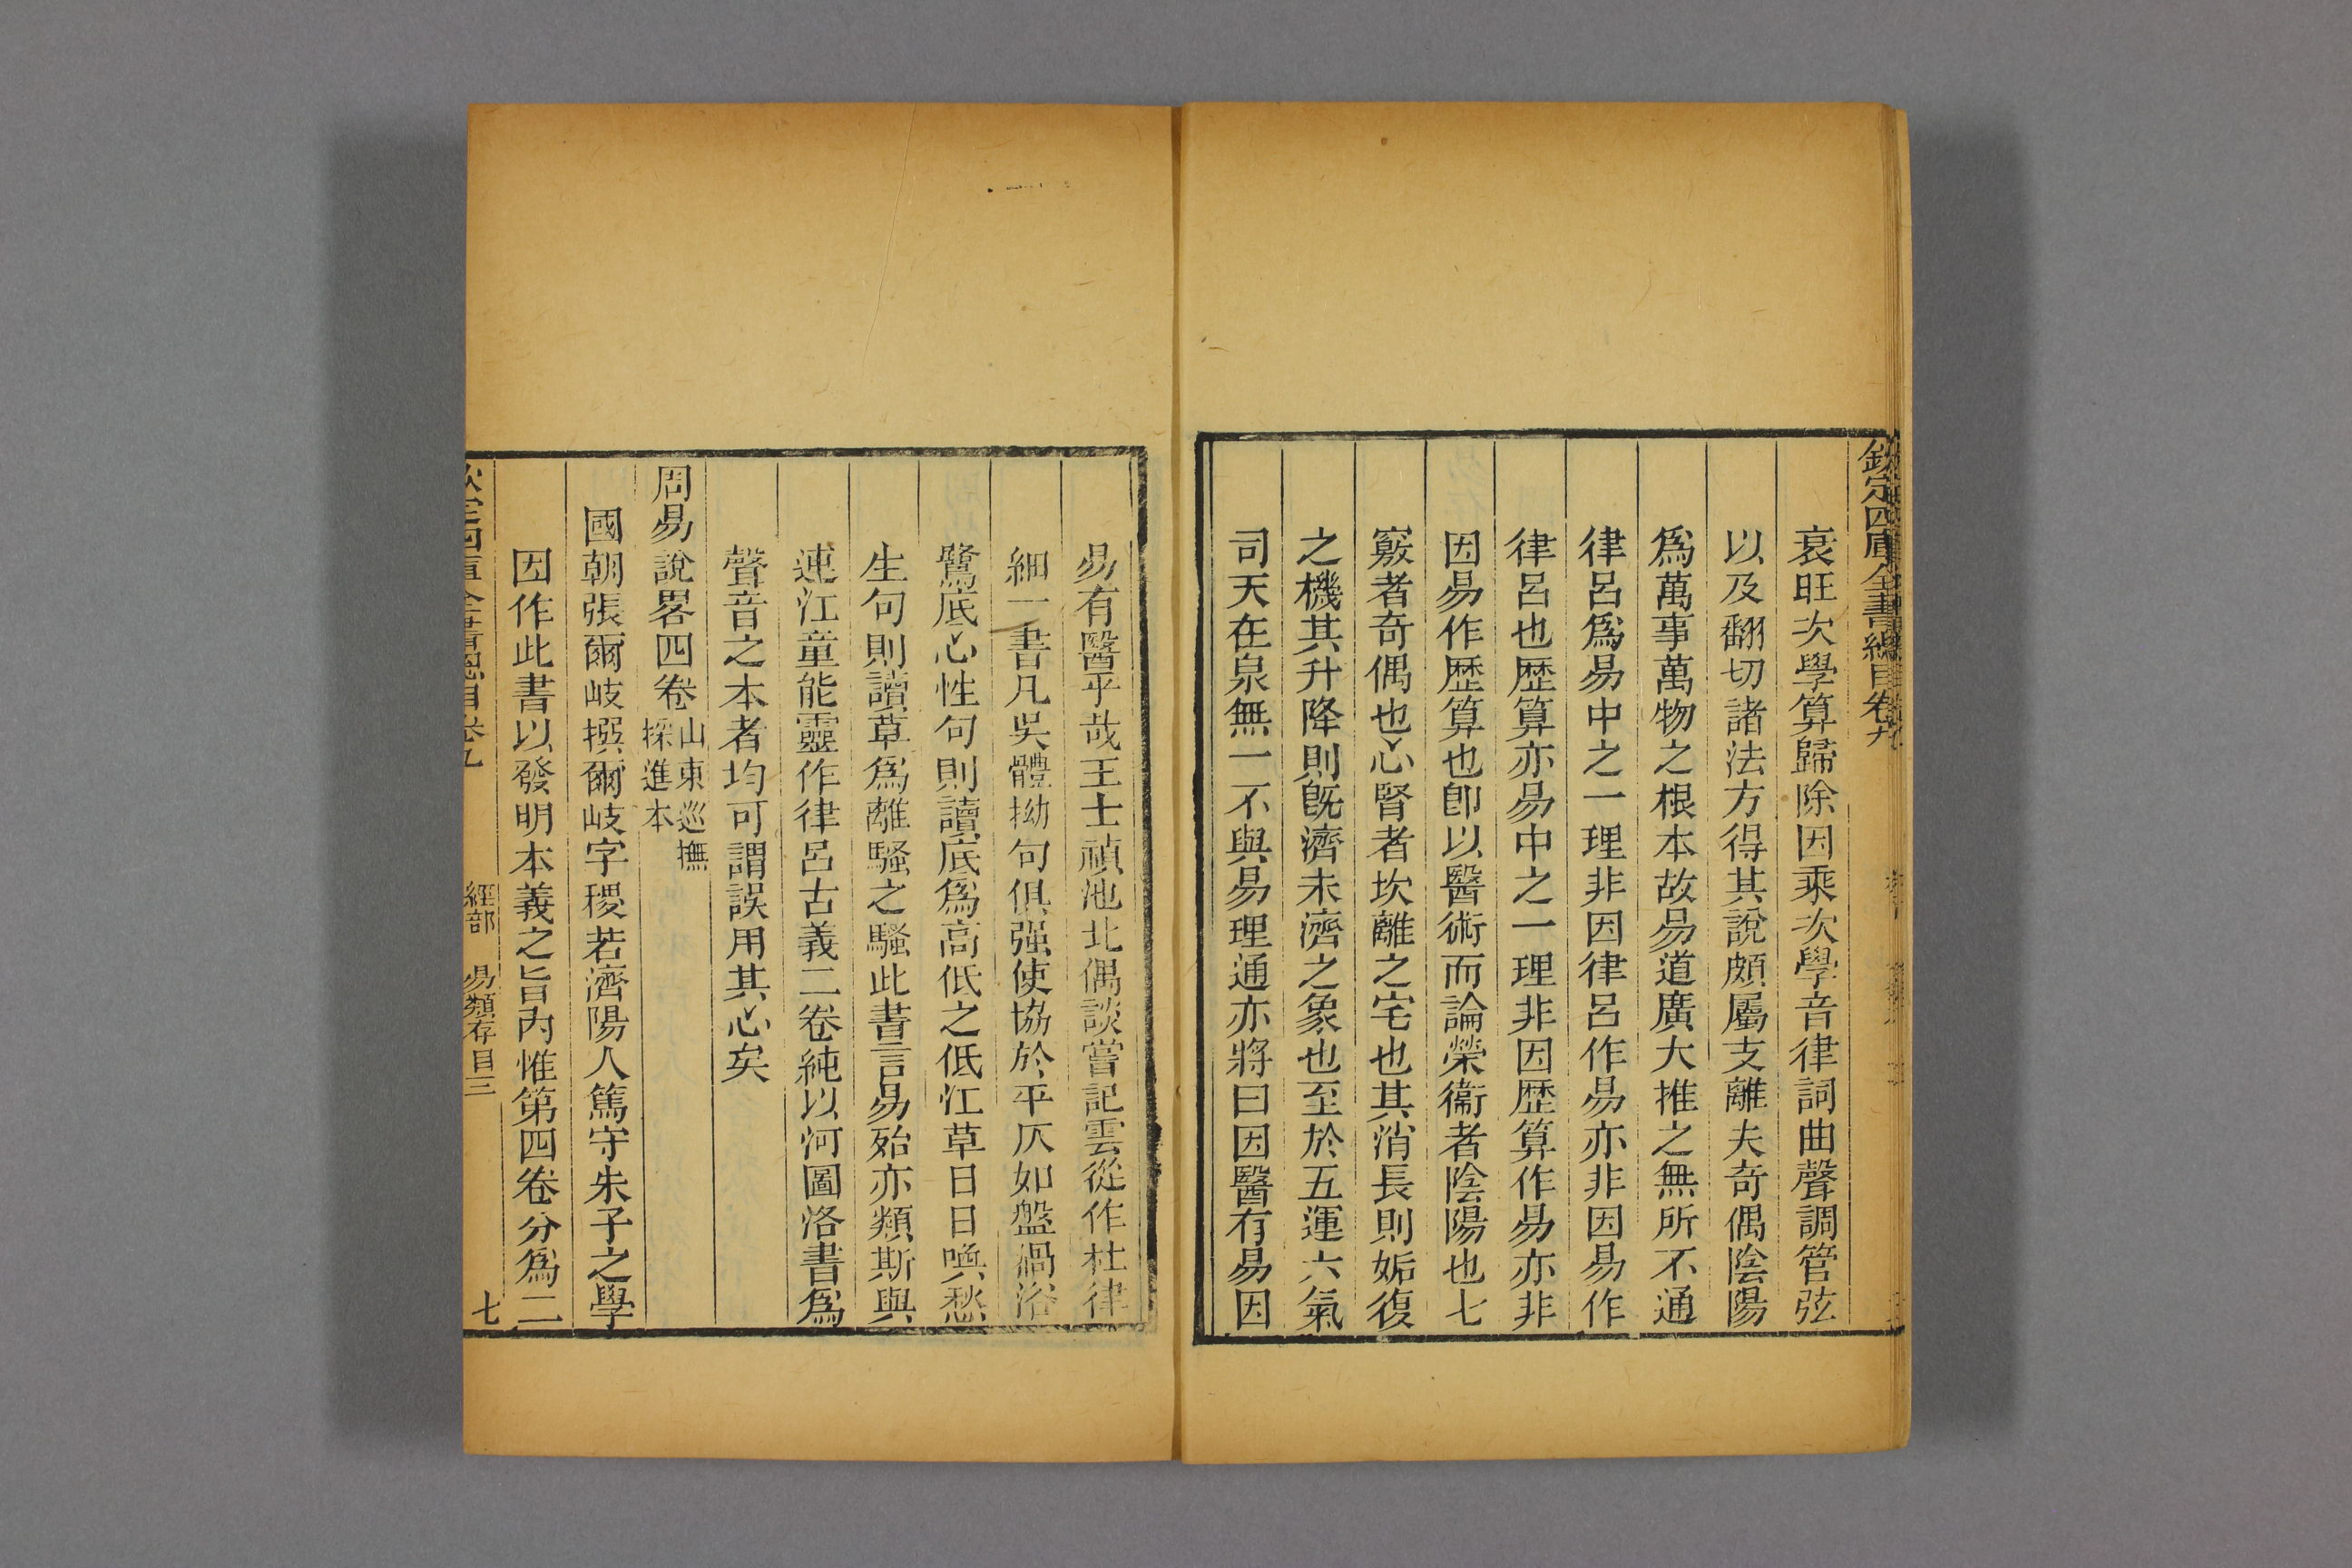 欽定四庫全書總目卷九
衰旺次學算歸除因乘次學音律詞曲聲調管弦
以及翻切諸法方得其說頗屬支離夫奇偶陰陽
爲萬事萬物之根本故易道廣大推之無所不通
律呂爲易中之一理非因律呂作易亦非因易作
律呂也歴算亦易中之一理非因歴算作易亦非
因易作歴算也卽以醫術而論榮衞者陰陽也七
竅者奇偶也心腎者坎離之宅也其消長則姤復
之機其升降則旣濟未濟之象也至於五運六氣
司天在泉無一不與易理通亦將曰因醫有易因
易有醫乎哉王士禎池北偶談嘗記雲從作杜律
細一書凡吳體拗句俱强使協於平仄如盤渦浴
鷺底心性句則讀底爲高低之低江草日日喚愁
生句則讀草爲離騷之騷此書言易殆亦類斯與
連江童能靈作律呂古義二卷純以河圖洛書爲
聲音之本者均可謂誤用其心矣
周易說畧四卷山東巡撫
採進本
國朝張爾岐撰爾岐字稷若濟陽人篤守朱子之學
因作此書以發明本義之旨內惟第四卷分爲二
欽定四庫全書總目卷九 經部 易類存目三 七